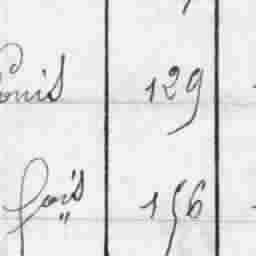 Louis 129
fois 156